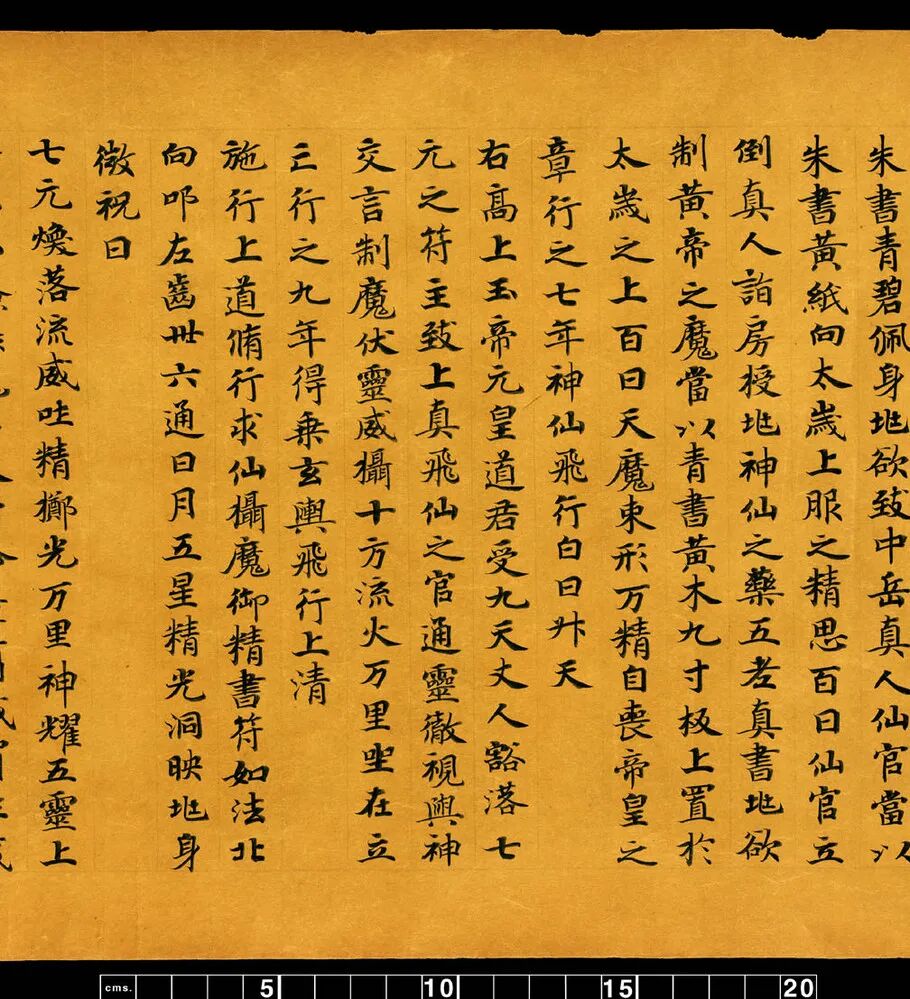 朱書青碧佩身也欲致中岳真人仙官當以
朱書黃紙向太歲上服之精思百日仙官立
倒真人詣房授也神仙之藥五老真書也欲
制黃帝之魔當以青書黃木九寸板上置於
太歲之上百日天魔束形万精自喪帝皇之
章行之七年神仙飛行白日升天
右高上玉帝元皇道君受九天丈人豁落七
元之符主致上真飛仙之官通靈徹視與神
交言制魔伏靈威攝十方流火万里坐在立
三行之九年得乘玄輿飛行上清
施行上道脩行求仙攝魔御精書符如法北
向叩左齒卅六通日月五星精光洞映也身
微祝曰
七元煥落流威吐精擲光万里神耀五靈上